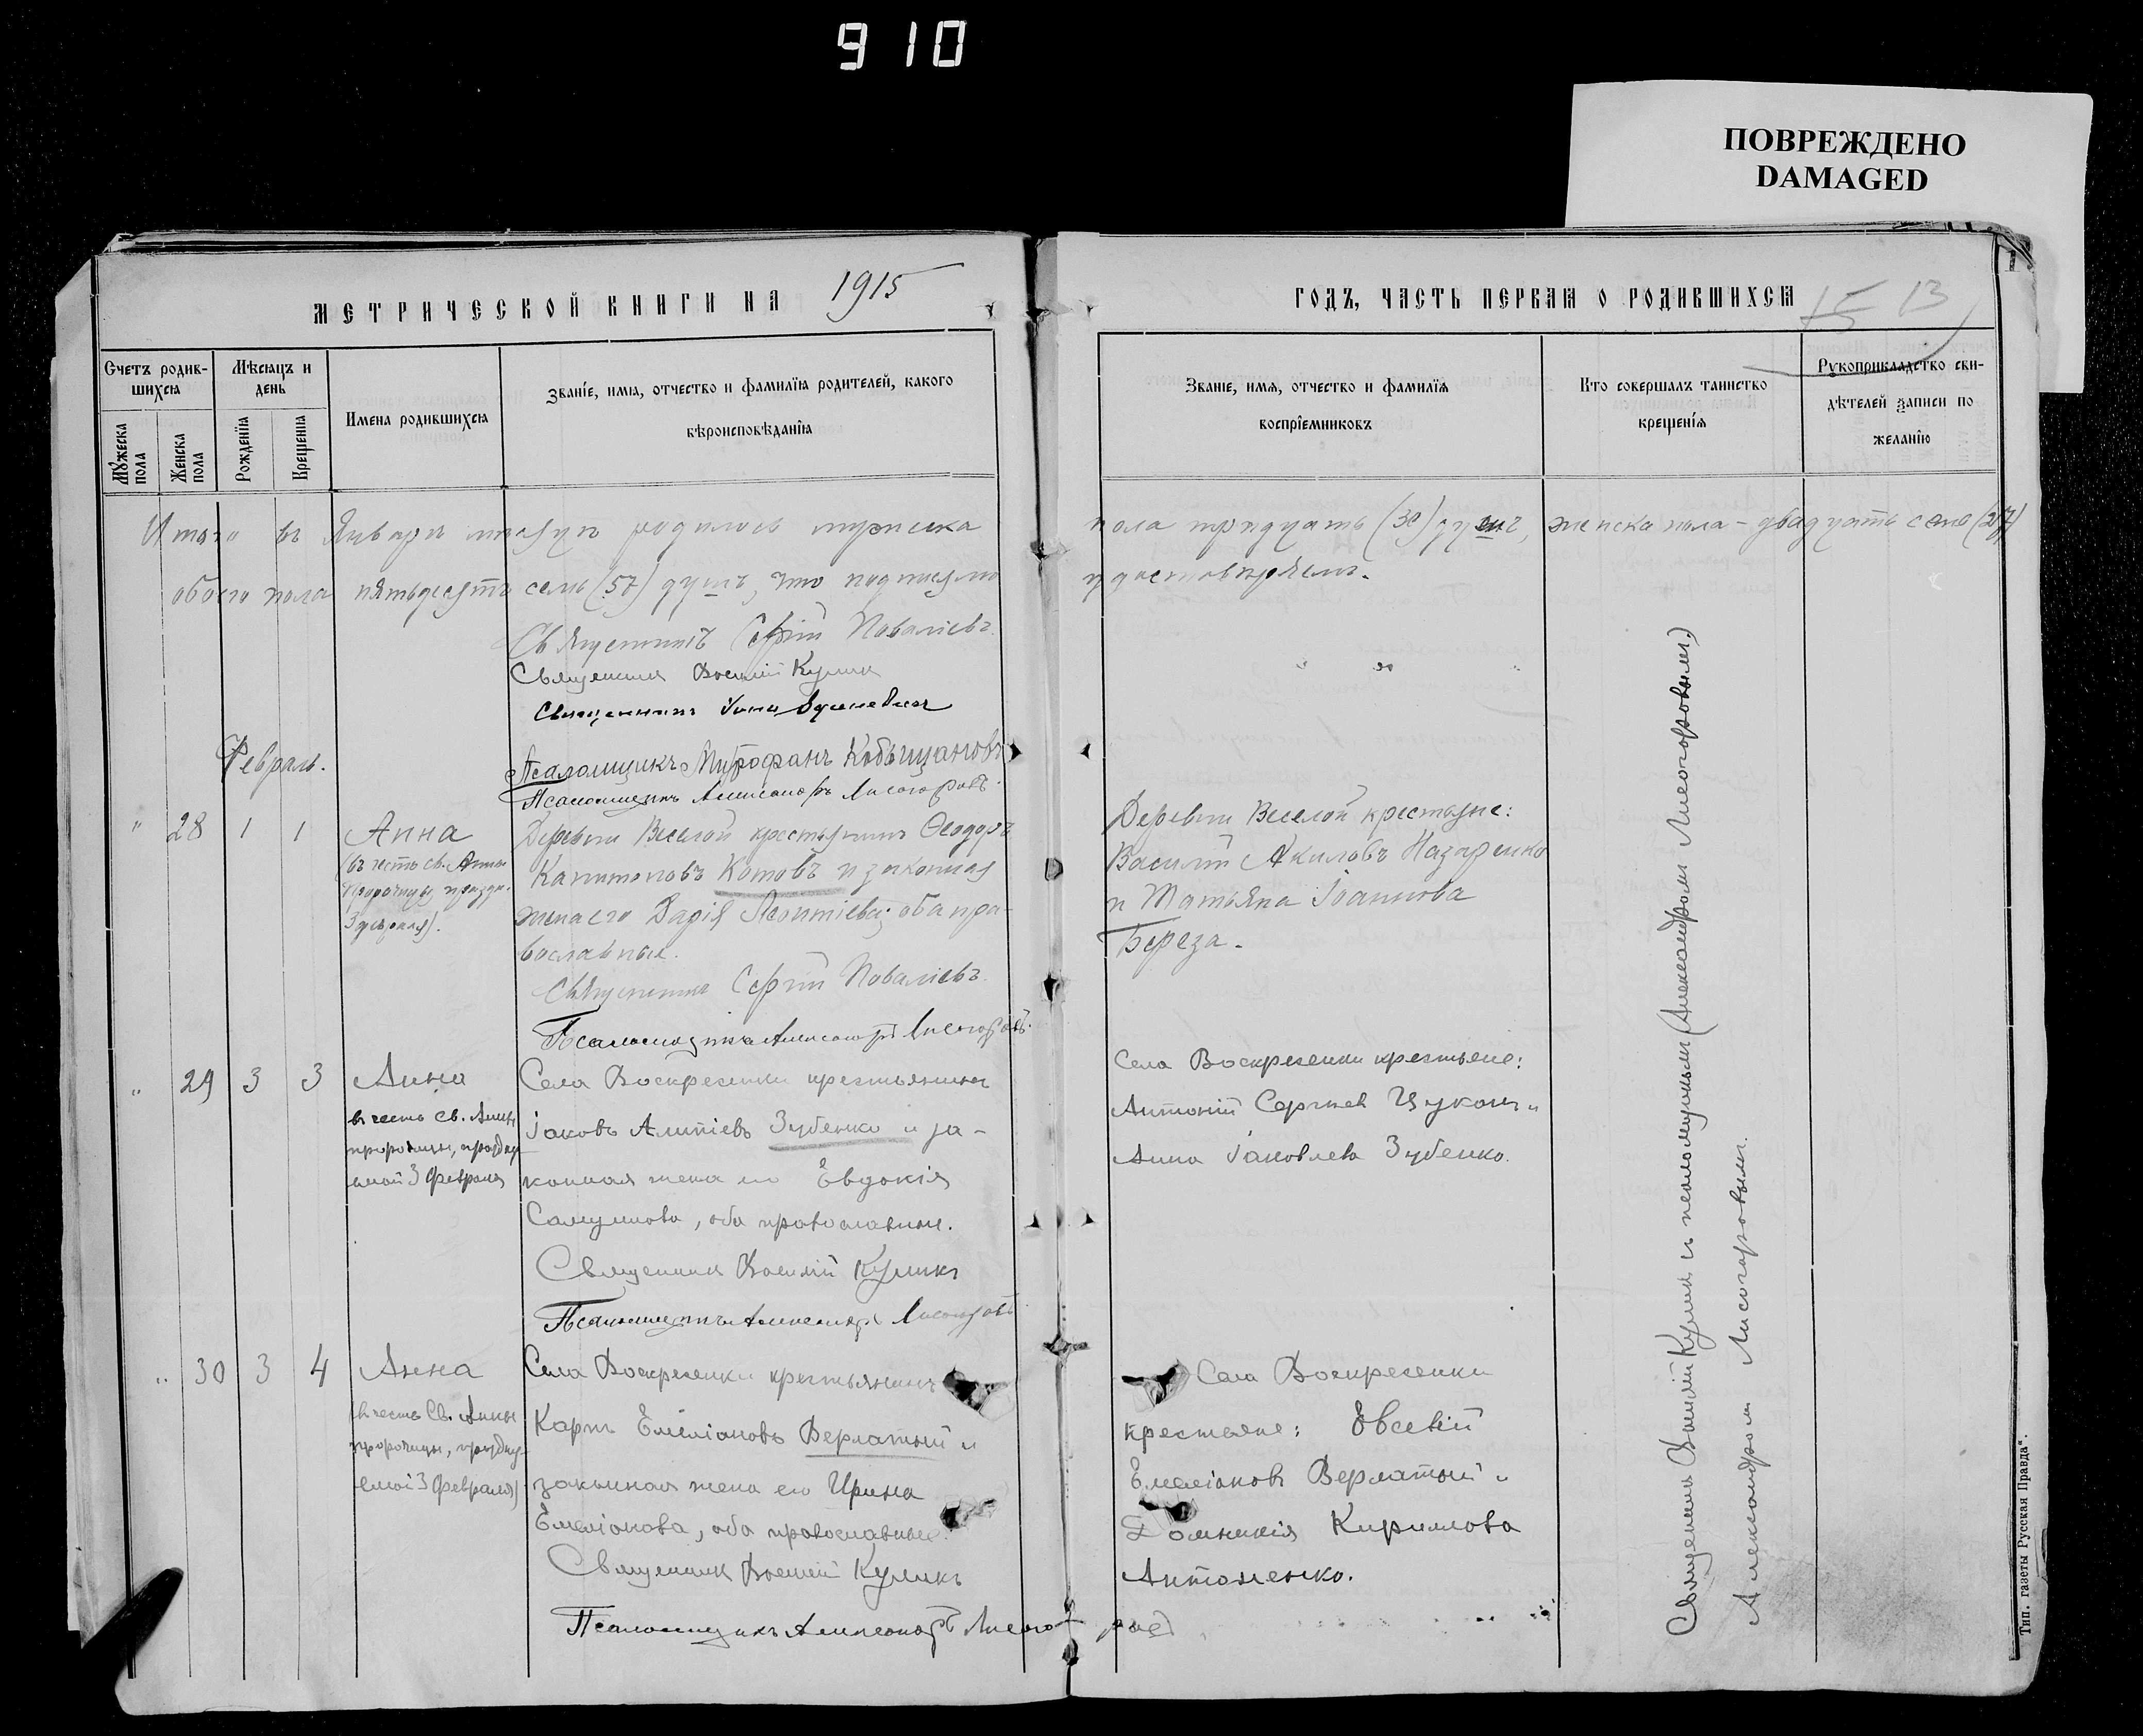 910
ПОВРЕЖДЕНО
DAMAGED
МЕТРИЧЕСКОЙ КНИГИ НА 1915
ГОДЪ, ЧАСТЬ ПЕРВАЯ О РОДИВШИХСЯ
15 13
Счетъ родив-
шихся
Мужеска пола
Женска пола
Мѣсяцъ и
день
Рожденія
Крещенія
Имена родившихся
Званіе, имя, отчество и фамилія родителей, какого
вѣроисповѣданія
Званіе, имя, отчество и фамилія
воспріемниковъ
Кто совершалъ таинство
крещенія
Рукоприкладство сви-
дѣтелей записи по
желанію
Итого въ Январѣ мѣсяцѣ родилось мужеска
пола тридцать (30) душъ, женска пола - двадцать семь (27)
обоего пола пятьдесятъ семь (57) душъ, что подписемъ
удостовѣряемъ.
Священникъ Сергій Поваліевъ.
Священникъ Василій Куликъ
Священникъ
Февраль.
Псаломщикъ Митрофанъ Кобыщановъ
Псаломщикъ Александръ Лисогоровъ.
" 28 1 1 Анна
(въ честь св. Анны
Пророчицы праздн.
3 февраля).
Деревни Веселой крестьянинъ Ѳеодоръ
Капитоновъ Котовъ и законная
жена его Дарія Леонтіева; оба пра-
вославные.
Священникъ Сергій Поваліевъ.
Псаломщикъ Александръ Лисогоровъ.
Деревни Веселой крестьяне:
Василій Акиловъ Назаренко
и Татьяна Іоаннова
Береза.
" 29 3 3 Анна
въ честь св. Анны
пророчицы, праздну
емой 3 Февраля
Села Воскресенки крестьянинъ
Іаковъ Алипіевъ Зубенко и за-
конная жена его Евдокія
Самуилова, оба православные.
Священникъ Василій Куликъ
Псаломщикъ Александръ Лисогоровъ
Села Воскресенки крестьяне:
Антоній Сергіевъ Цуканъ и
Анна Іаковлева Зубенко.
" 30 3 4 Анна
(въ честь Св. Анны
пророчицы, праздну-
емой 3 Февраля)
Села Воскресенки крестьянинъ
Карпъ Емеліановъ Верлатый и
законная жена его Ирина
Емеліанова, оба православные.
Священникъ Василій Куликъ
Псаломщикъ Александръ Лисогоровъ
Села Воскресенки
крестьяне: Евсевій
Емеліановъ Верлатый и
Домникія Кириллова
Антоненко.
Священникъ Василій Куликъ и псаломщикъ (Александромъ Лисогоровымъ.)
Александромъ Лисогоровымъ.
Тип. газеты „Русская Правда“.